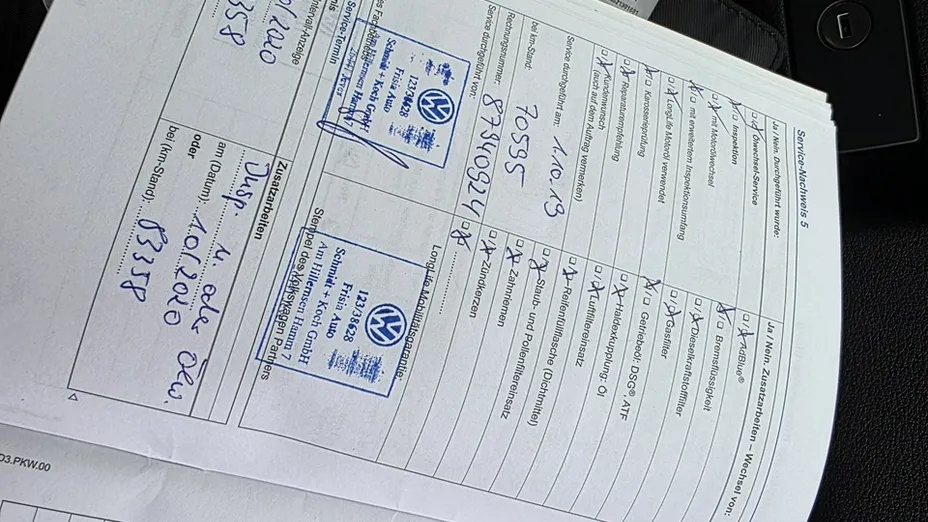 Service-Nachweis 5
Ja / Nein. Durchgeführt wurde:
Ölwechsel-Service
Inspektion
mit Motorölwechsel
mit erweitertem Inspektionsumfang
LongLife Motoröl verwendet
Karosserieprüfung
Reparaturempfehlung
Kundenwunsch
(auch auf dem Auftrag vermerken)
Service durchgeführt am: 1.10.19
bei km-Stand: 70595
Rechnungsnummer: 87940924
Service durchgeführt von:
12/38628
Frisia Auto
Schmidt + Koch GmbH
Service-Termin
Intervall-Anzeige
Ja / Nein. Zusatzarbeiten – Wechsel von:
AdBlue®
Bremsflüssigkeit
Dieselkraftstofffilter
Gasfilter
Getriebeöl: DSG®, ATF
Haldexkupplung: Öl
Luftfiltereinsatz
Reifenfüllflasche (Dichtmittel)
Staub- und Pollenfiltereinsatz
Zahnriemen
Zündkerzen
LongLife Mobilitätsgarantie:
12/38628
Frisia Auto
Schmidt + Koch GmbH
Am Hillernsen Hamm 7
Stempel des Volkswagen Partners
Zusatzarbeiten
Insp. u. oder Ölw.
am (Datum): 10/2020
oder
bei (km-Stand): 83358